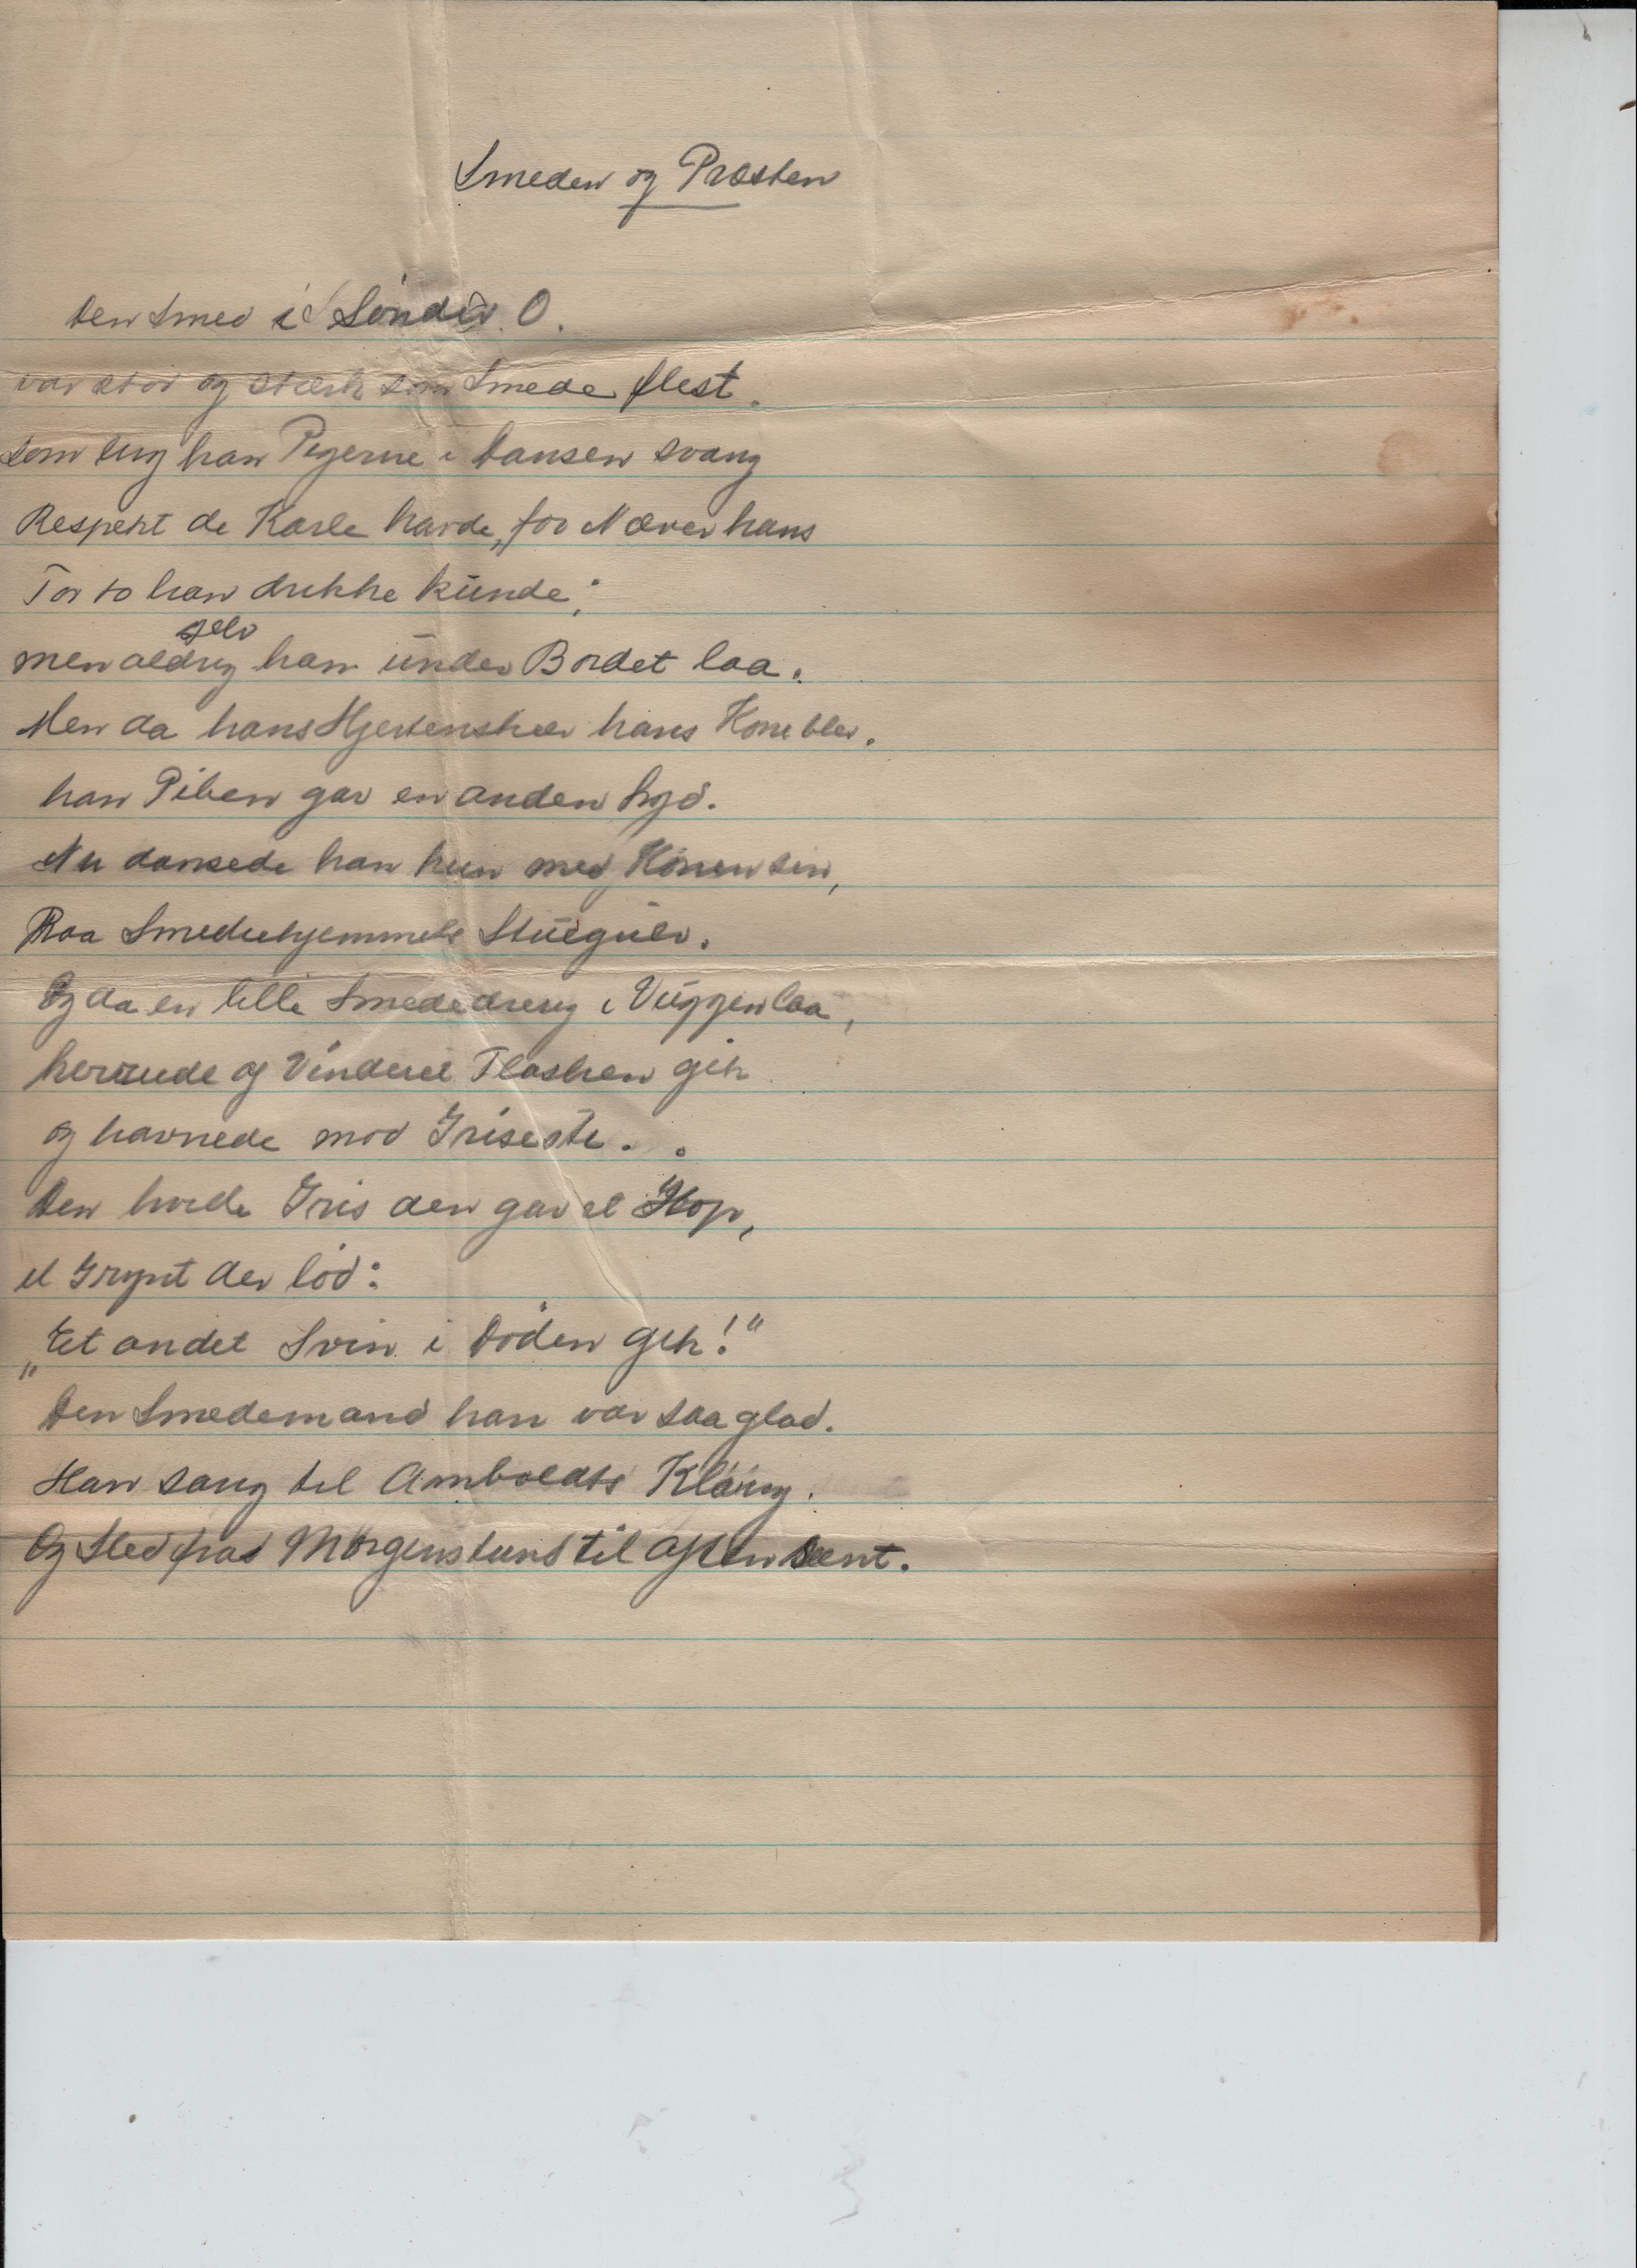 Smeden og Præsten
Den Smed i Sønder O.
var stor og stærk som Smede flest.
som ung han Pigerne i Dansen svang
Respekt de Karle havde, for Næver hans
For to han drikke kunde;
selv
men aldrig han under Bordet laa.
Men da hans Hjertenskær hans Kone blev.
han Piben gav en anden Lyd.
Nu dansede han kun med Konen sin,
Paa Smedehjemmets Stuegulv.
Og da en lille Smededreng i Vuggen laa,
herrude af Vinduet Flasken gik
og havnede mod Grisesti.
Den hvide Gris den gav et Hop,
et Grynt der lød:
„Et andet Svin i Døden gik!"
Den Smedemand han var saa glad.
Han sang til Amboldts Klang.
Og Sled fra Morgenstund til aften sent.